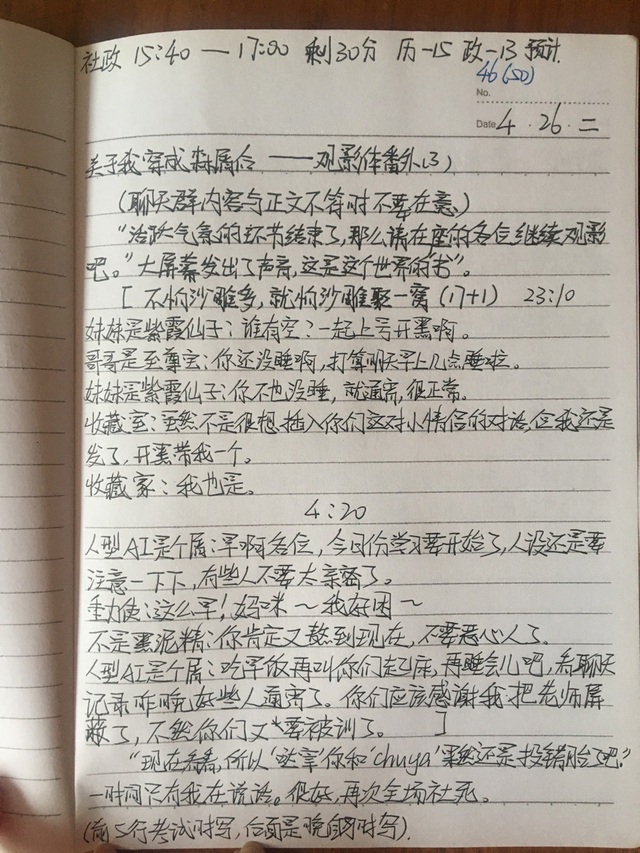 社政 15:40 — 17:00 剩30分 历-15 政-13 预计
46(50)
No.
Date 4.26.二
关于我穿成森属合 ——观影体番外(3)
(聊天群内容与正文不符时不要在意)
“活跃气氛的环节结束了,那么请在座的各位继续观影
吧。”大屏幕发出了声音,这是这个世界的“书”。
[ 不怕沙雕多,就怕沙雕聚一窝 (17+1) 23:10
妹妹是紫霞仙子:谁有空?一起上号开黑啊。
哥哥是至尊宝:你还没睡啊,打算明天早上几点睡啦。
妹妹是紫霞仙子:你不也没睡,就通宵,很正常。
收藏室:虽然不是很想插入你们这对小情侣的对话,但我还是
发了,开黑带我一个。
收藏家:我也是。
4:20
人型AI是个属:早啊各位,今日份学习要开始了,人设还是要
注意一下下,有些人不要太亲密了。
重力使:这么早!妈咪～我好困～
不是黑泥精:你肯定又熬到现在,不要恶心人了。
人型AI是个属:吃早饭再叫你们起床,再睡会儿吧,看聊天
记录昨晚好些人通宵了。你们应该感谢我把老师屏
蔽了,不然你们又要被训了。 ]
“现在看看,所以‘哒宰’你和‘chuya’果然还是投错胎了吧。”
一时间只有我在说话。很好,再次全场社死。
(前5行考试时写,后面是晚自习时写)